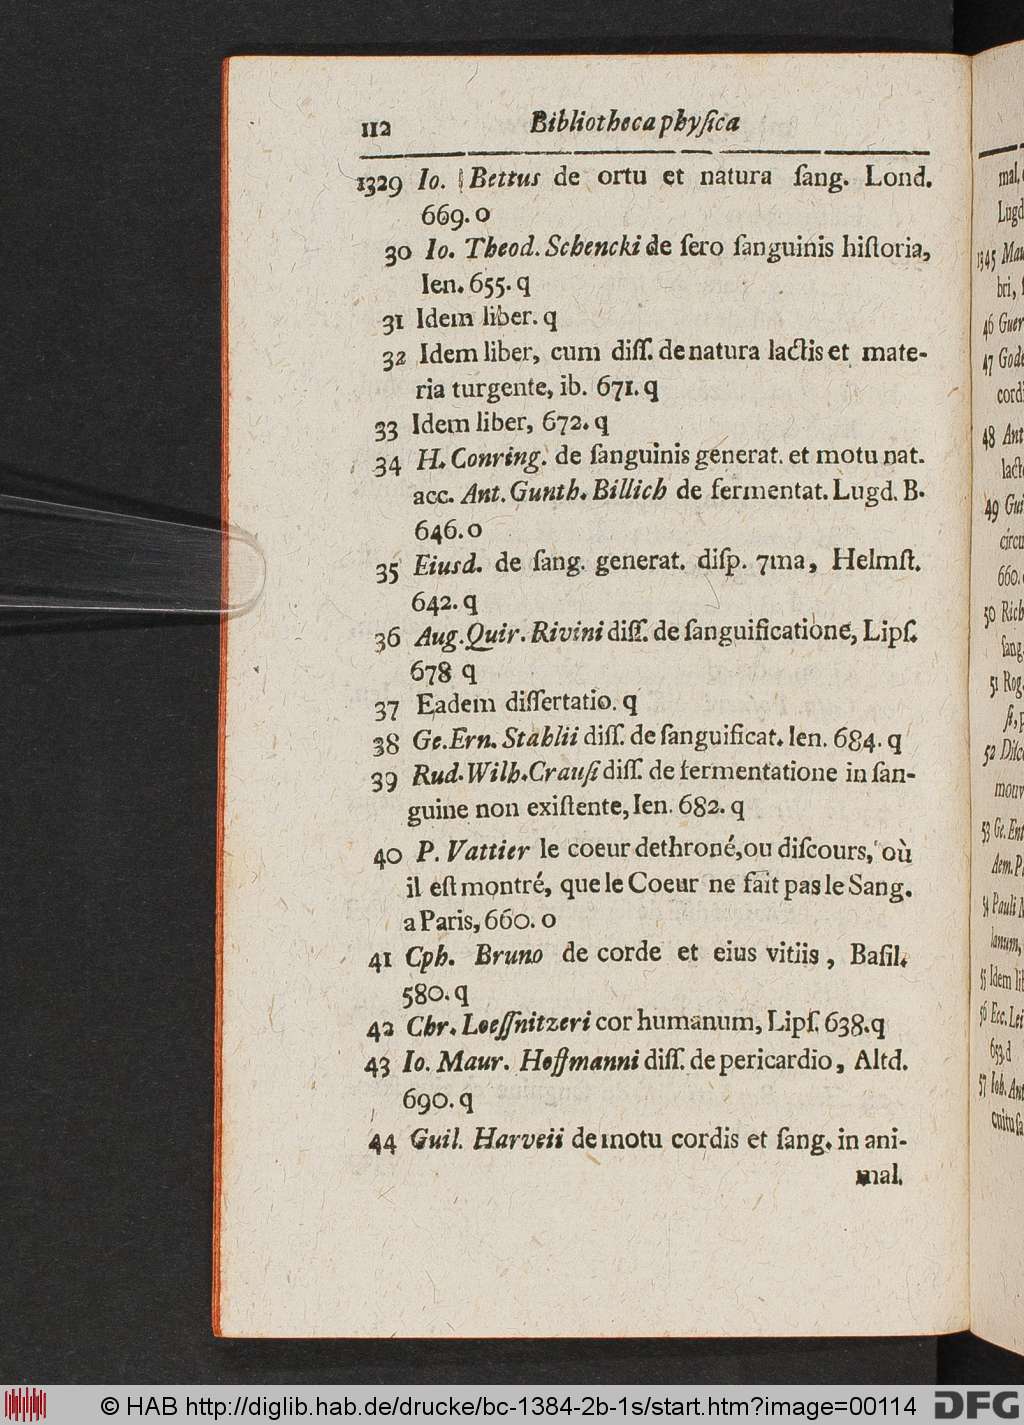 112 Bibliotheca phyſica
1329 Io. Bettus de ortu et natura ſang. Lond.
669. o
30 Io. Theod. Schencki de ſero ſanguinis hiſtoria,
Ien. 655. q
31 Idem liber. q
32 Idem liber, cum diſſ. de natura lactis et mate-
ria turgente, ib. 671. q
33 Idem liber, 672. q
34 H. Conring. de ſanguinis generat. et motu nat.
acc. Ant. Gunth. Billich de fermentat. Lugd. B.
646. o
35 Eiusd. de ſang. generat. diſp. 7ma, Helmſt.
642. q
36 Aug. Quir. Rivini diſſ. de ſanguificatione, Lipſ.
678 q
37 Eadem diſſertatio. q
38 Ge. Ern. Stahlii diſſ. de ſanguificat. Ien. 684. q
39 Rud. Wilh. Crauſi diſſ. de fermentatione in ſan-
guine non exiſtente, Ien. 682. q
40 P. Vattier le coeur dethroné, ou diſcours, où
il eſt montré, que le Coeur ne fait pas le Sang.
a Paris, 660. o
41 Cph. Bruno de corde et eius vitiis, Baſil.
580. q
42 Chr. Loeſſnitzeri cor humanum, Lipſ. 638. q
43 Io. Maur. Hoffmanni diſſ. de pericardio, Altd.
690. q
44 Guil. Harveii de motu cordis et ſang. in ani-
mal.
mal.
Lugd
1345 Mau
bri,
46 Guer
47 Gode
cordi
48 Ant
lacte
49 Gui
circu
660.
50 Rich
ſang.
51 Rog.
52 Diſco
mouv
53 Ge. Ent
Aem. P
54 Pauli
lanum,
55 Idem li
56 Ecc. Lei
653. d
57 Ioh. Ant
© HAB http://diglib.hab.de/drucke/bc-1384-2b-1s/start.htm?image=00114
DFG